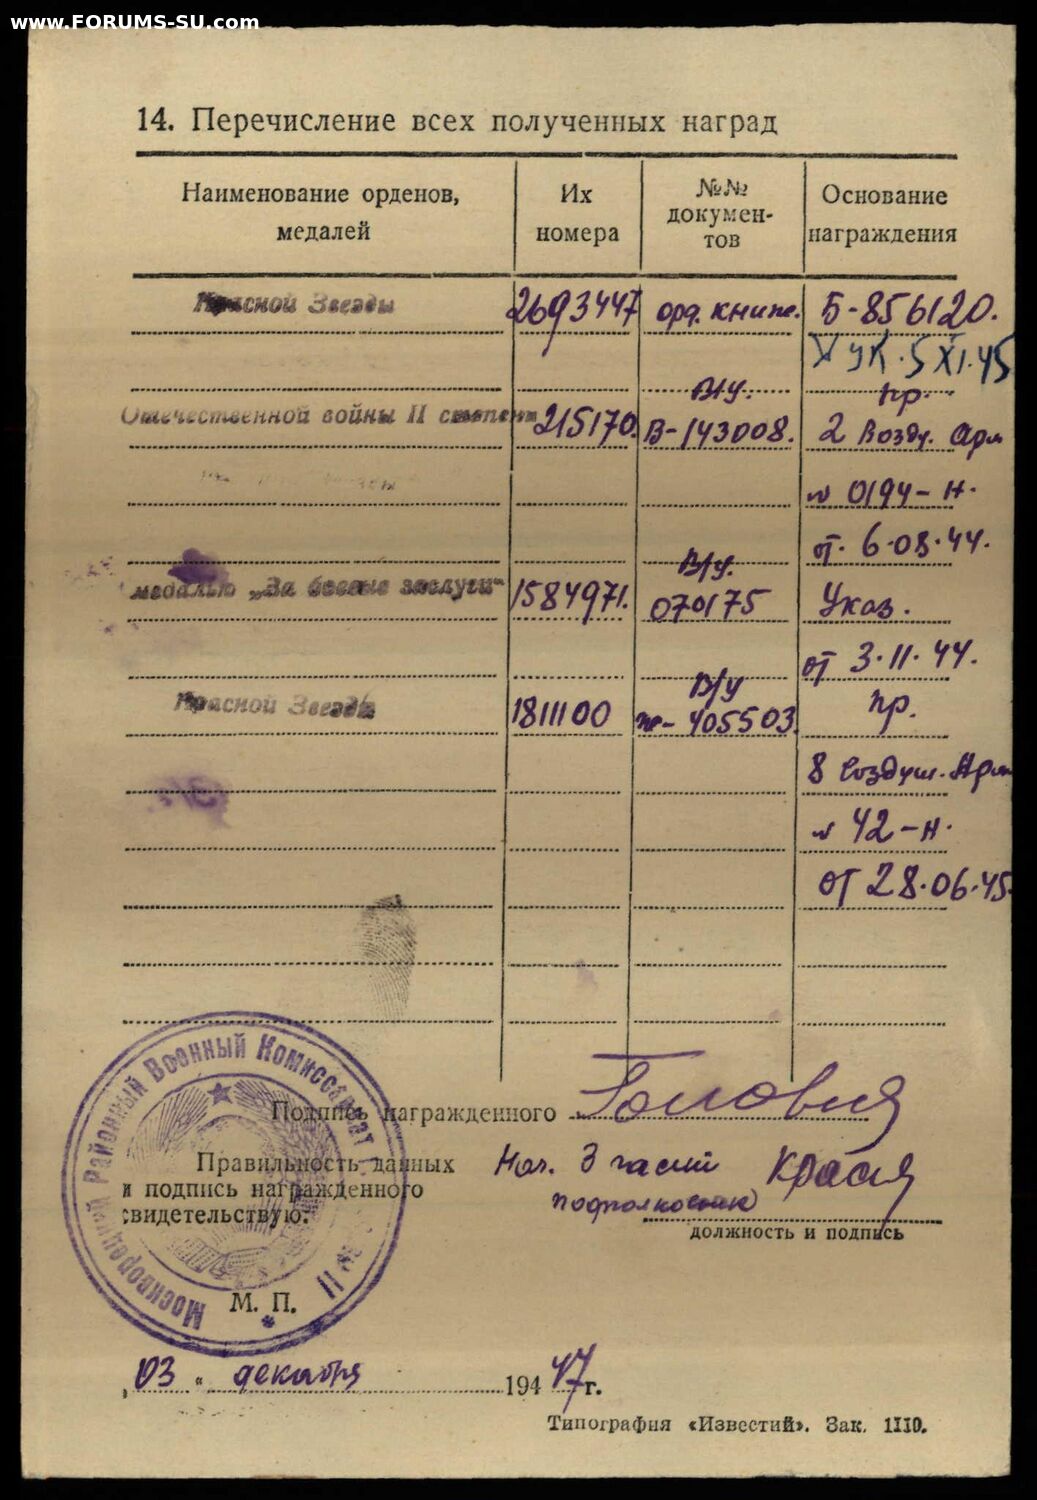 www.FORUMS-SU.com
14. Перечисление всех полученных наград
Наименование орденов, медалей
Их номера
№№ докумен-тов
Основание награждения
Красной Звезды 2693447 орд. книж. Б-856120.
УК. 5 XI.45
В/у. пр.
Отечественной войны II степени 215170. В-143008. 2 Возду. Арм
№ 0194-н.
от. 6.08.44.
В/у.
медалью „За боевые заслуги" 1584971. 070175 Указ.
от 3.11.44.
В/у
Красной Звезды 1811100 405503. пр.
8 Воздуш. Арм
№ 42-н.
от 28.06.45.
Подпись награжденного
Правильность данных
и подпись награжденного
свидетельствую:
Нач. 3 части
подполковник
должность и подпись
Москворецкий Районный Военный Комиссариат
М. П.
„03 " декабря 1947 г.
Типография «Известий». Зак. 1110.